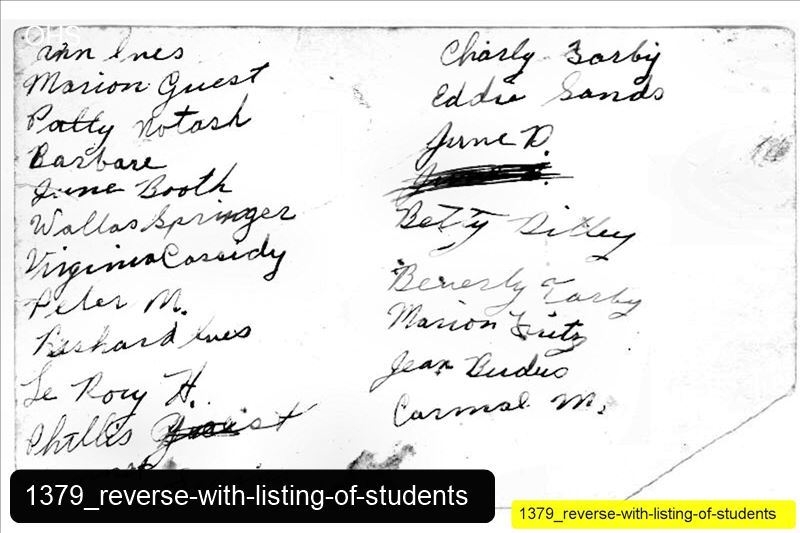 OHS
Ann Ines
Marion Guest
Patty Notash
Barbare
June Booth
Wallas Springer
Virginia Cassidy
Peter M.
Rishard Ines
Le Rory H.
Phillis
Charly Zarby
Eddie Sands
June D.
Betty Ditley
Beverly Zarby
Marion Fritz
Jean Budus
Carmal M.
1379_reverse-with-listing-of-students
1379_reverse-with-listing-of-students